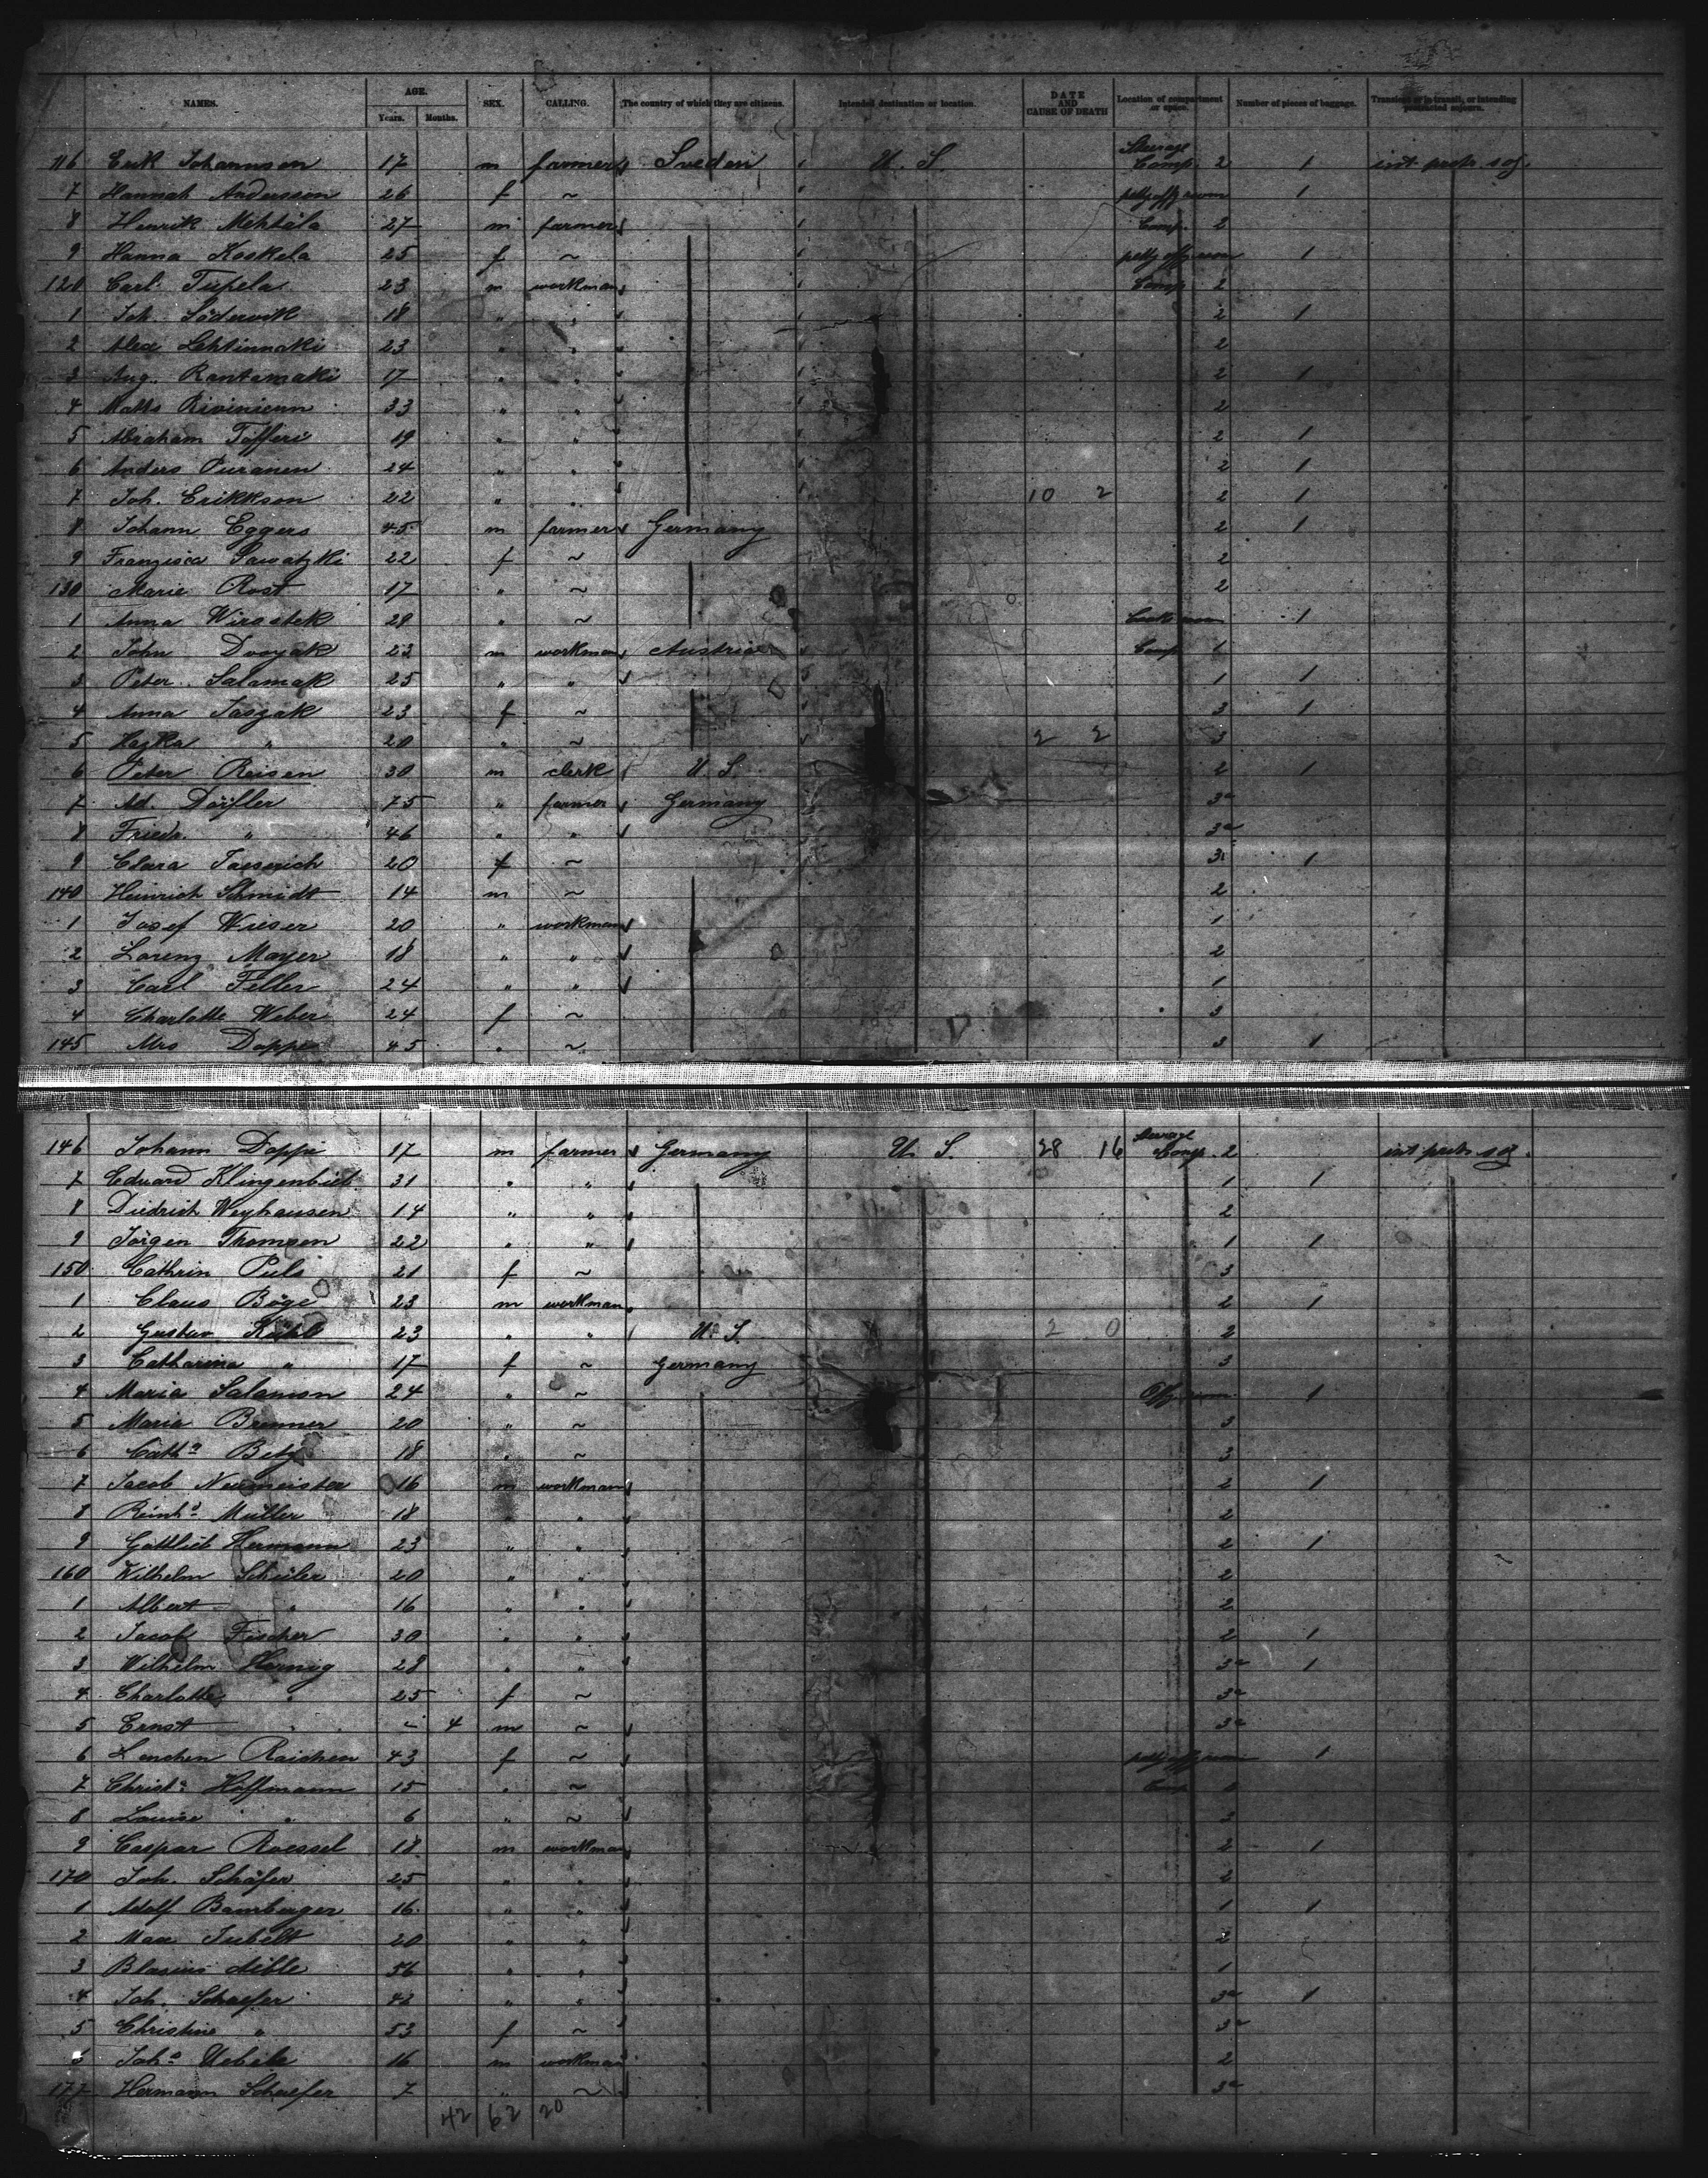 NAMES. AGE. SEX. CALLING. The country of which they are citizens. Intended destination or location. DATE AND CAUSE OF DEATH Location of compartment or space. Number of pieces of baggage. Transient or in transit, or intending protracted sojourn.
Years. Months.
116 Erik Johannson 17 m farmer Sweden U. S. Steerage Comp. 2 1 int. protr. soj.
7 Hannah Andersson 26 f ~ petty off. room 1
8 Henrik Mehtälä 27 m farmer Comp. 2
9 Hanna Koskela 25 f ~ petty off. room 1
120 Carl Tupela 23 m workman Comp. 2
1 Joh. Södervik 18 " " 2 1
2 Alex Lehtinmaki 23 " " 2
3 Aug. Rantamaki 17 " " 2 1
4 Matts Rivinienn 33 " " 2
5 Abraham Tofferi 19 " " 2 1
6 Anders Puranen 24 " " 2 1
7 Joh. Erikkson 22 " " 10 2 2 1
8 Johann Eggers 45 m farmer Germany 2 1
9 Franzisca Sawatzki 22 f ~ 2
130 Marie Rost 17 " ~ 2
1 Anna Wirostek 29 " ~ Cook room 1
2 John Dvoyak 23 m workman Austria Comp. 1
3 Peter Salamak 25 " " 1 1
4 Anna Jaszak 23 f ~ 3 1
5 Hazka " 20 " ~ 2 2 3
6 Peter Reisen 30 m clerk U. S. 2 1
7 Ad. Dörfler 75 " farmer Germany 3a
8 Friedr. " 46 " " 3a
9 Clara Jaeserich 20 f ~ 3 1
140 Heinrich Schmidt 14 m ~ 2
1 Josef Wieser 20 " workman 1
2 Lorenz Mayer 18 " " 2
3 Carl Feller 24 " " 1
4 Charlotte Weber 24 f ~ 3
145 Mrs Doppe 45 " ~ 3 1
146 Johann Doppe 17 m farmer Germany U. S. 28 16 Steerage Comp. 2 int. protr. soj.
7 Eduard Klingenbiel 31 " " 1 1
8 Diedrich Weyhausen 14 " " 2
9 Jörgen Thomsen 22 " " 1 1
150 Cathrin Puls 21 f ~ 3
1 Claus Böge 23 m workman 2 1
2 Gustav Kühl 23 " " U. S. 2 0 2
3 Catharina " 17 f ~ Germany 3
4 Maria Salamon 24 " ~ Off. room 1
5 Maria Brenner 20 " ~ 3
6 Catha Betz 18 " ~ 3
7 Jacob Neumeister 16 m workman 2 1
8 Reinhd Müller 18 " " 2
9 Gottlieb Hermann 23 " " 2 1
160 Wilhelm Schüler 20 " " 2
1 Albert " 16 " " 2
2 Jacob Fischer 30 " " 2 1
3 Wilhelm Hornig 28 " " 3a 1
4 Charlotte " 25 f ~ 3a
5 Ernst " - 4 m ~ 3a
6 Lenchen Raichen 43 f ~ petty off. room 1
7 Christe Hoffmann 15 " ~ Comp.
8 Louise " 6 " ~ 3
9 Caspar Roessel 18 m workman 2 1
170 Joh. Schäfer 25 " " 2
1 Adolf Bamberger 16 " " 1 1
2 Max Jubelt 20 " " 2
3 Blasius Aible 56 " " 1
4 Joh. Schaefer 42 " " 3a 1
5 Christine " 53 f ~ 3a
6 Joha Uebele 16 m workman 2
177 Hermann Schaefer 7 " ~ 3a
42 62 20